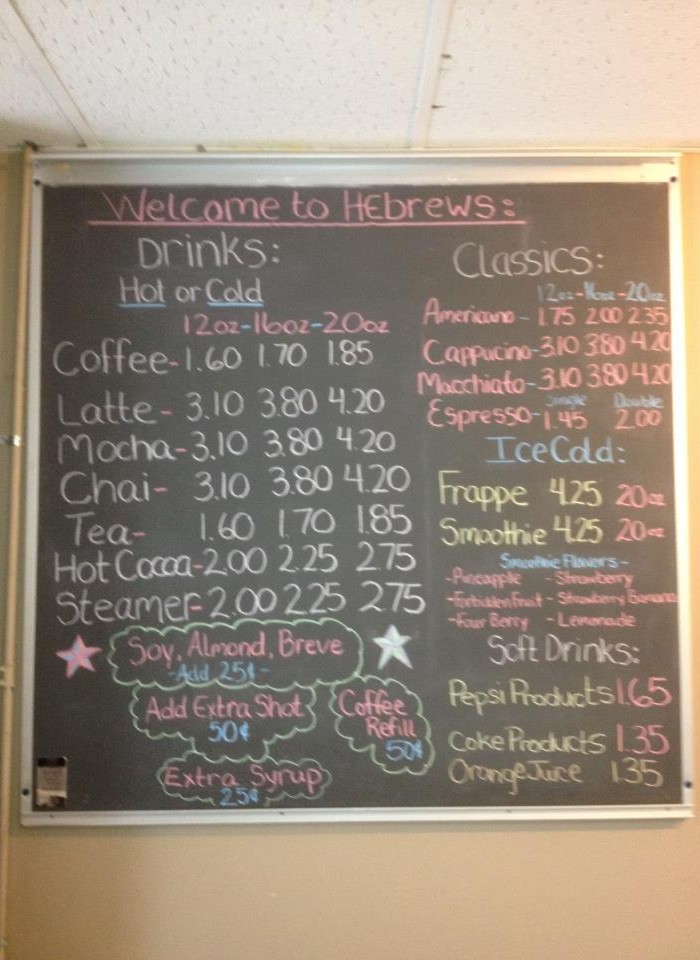 Welcome to HEbrews:
Drinks:
Hot or Cold
12oz-16oz-20oz
Coffee-1.60 1.70 1.85
Latte - 3.10 3.80 4.20
Mocha-3.10 3.80 4.20
Chai- 3.10 3.80 4.20
Tea- 1.60 1.70 1.85
Hot Cocoa-2.00 2.25 2.75
Steamer-2.00 2.25 2.75
Soy, Almond, Breve
-Add 25¢-
Add Extra Shot
50¢
Coffee
Refill
50¢
Extra Syrup
25¢
Classics:
12oz-16oz-20oz
Americano - 1.75 2.00 2.35
Cappucino-3.10 3.80 4.20
Macchiato-3.10 3.80 4.20
Single Double
Espresso-1.45 2.00
Ice Cold:
Frappe 4.25 20oz
Smoothie 4.25 20oz
Smoothie Flavors-
-Pineapple - Strawberry
-Forbidden Fruit - Strawberry Banana
-Four Berry - Lemonade
Soft Drinks:
Pepsi Products 1.65
Coke Products 1.35
Orange Juice 1.35